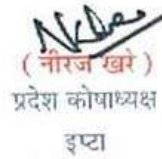 ( नीरज खरे )
प्रदेश कोषाध्यक्ष
इप्टा